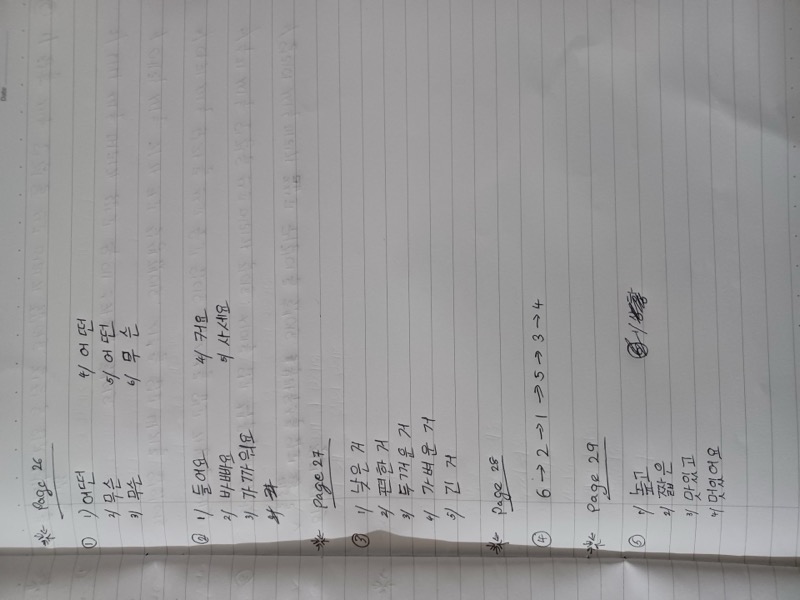 Page 26
① 1) 어떤 4) 어떤
2) 무슨 5) 어떤
3) 무슨 6) 무슨
② 1) 들어요 4) 커요
2) 바빠요 5) 사세요
3) 가까워요
Page 27
③ 1) 낮은 거
2) 편한 거
3) 두꺼운 거
4) 가벼운 거
5) 긴 거
Page 28
④ 6 → 2 → 1 → 5 → 3 → 4
Page 29
⑤ 1) 높고
2) 짧은
3) 맛있고
4) 멋있어요